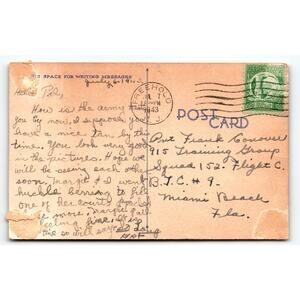 SPACE FOR WRITING MESSAGES
July 6, 194
Hello Pal,
How is the army treating
you by now, I suppose you
have a nice tan by this
time. You look very good
in the pictures. Hope we
will be seeing each other
soon. Margie & I went
huckle berrying to
one of her courts
more. Margie
feeling fine,
so will say So Long
FREEHOLD
JUL 7
PM
1943
N.J.
POST CARD
Pvt Frank Conover
915 Training Group
Squad 152. Flight C.
B.T.C. # 9.
Miami Beach
Fla.